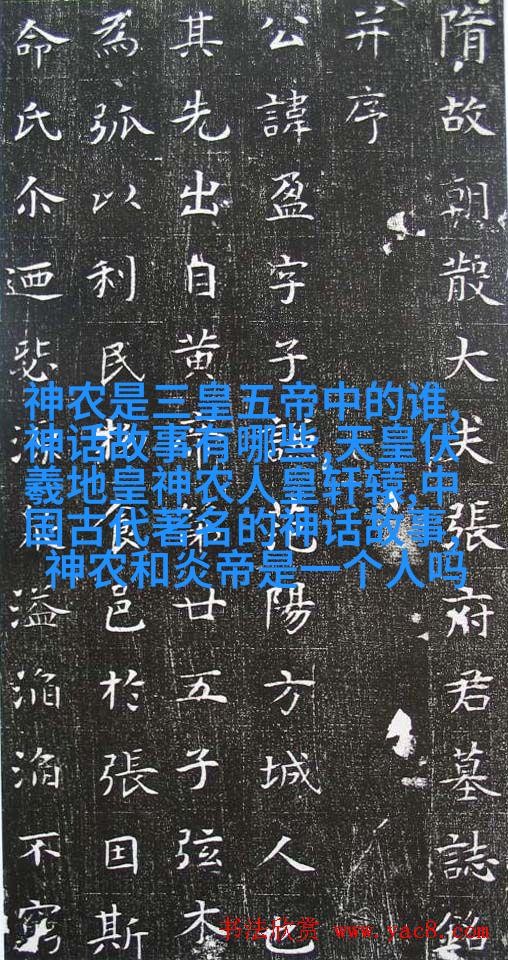 隋故朝散大夫張府君墓誌銘
并序
公諱盈字子范陽方城人也
其先出自黄帝廿五子弦木
為弧以利民食邑於張因斯
命氏尒迺溢滔滔不窮
神农是三皇五帝中的谁,
神话故事有哪些,天皇伏
羲地皇神农人皇轩辕,中
国古代著名的神话故事,
神农和炎帝是一个人吗
书法欣赏 www.yac8.com